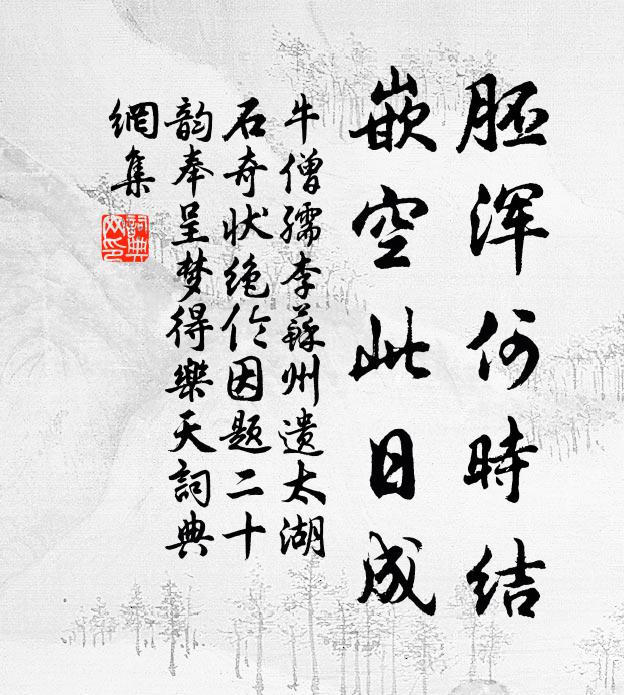 胚浑何時结
嵌空此日成
牛僧孺李蘇州遗太湖
石奇状绝伦因题二十
韵奉呈梦得樂天詞典
網集
詞典
網印